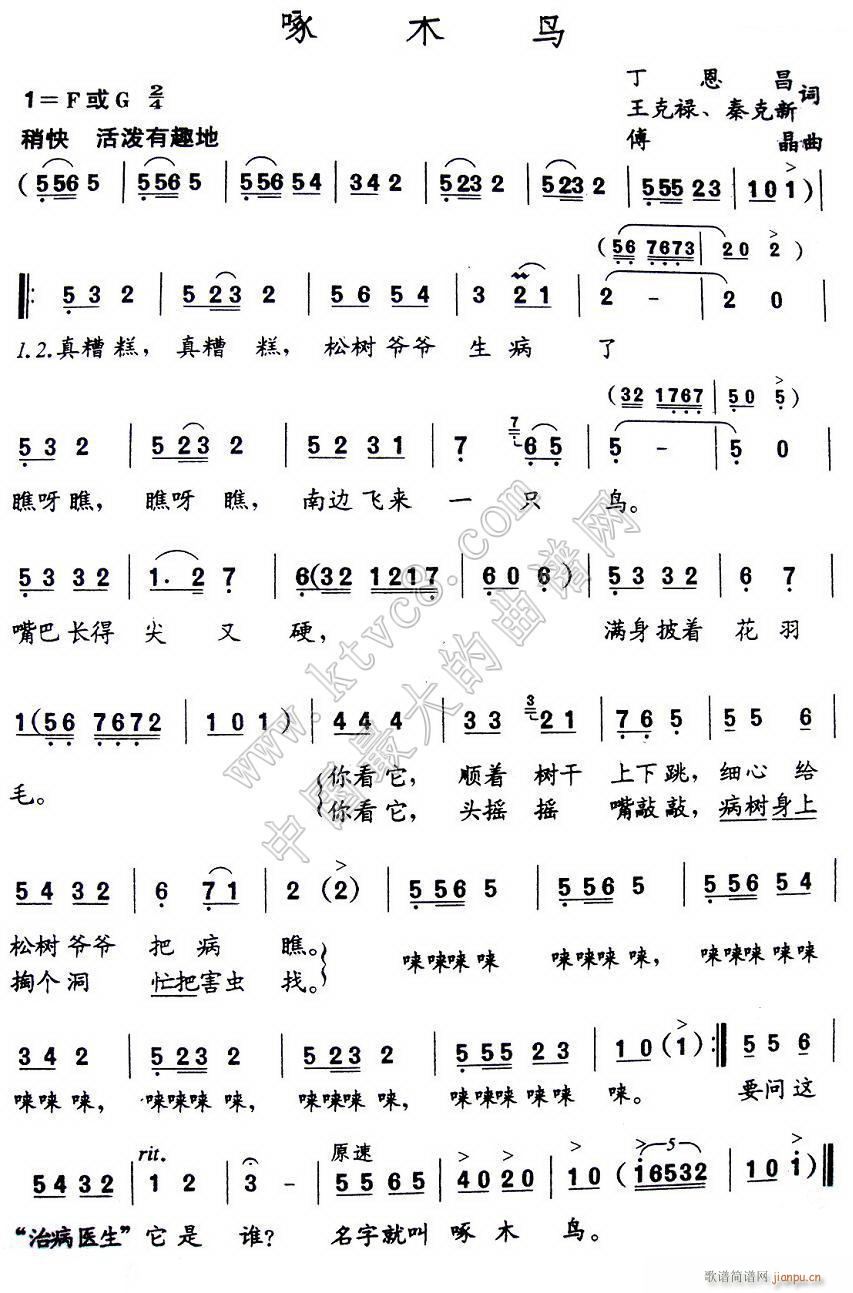 啄 木 鸟
丁 恩 昌
王克禄、秦克新 词
傅 晶曲
1=F或G 2/4
稍快 活泼有趣地
(5565 | 5565 | 55654 | 342 | 5232 | 5232 | 55523 | 101)|
(56 7673 | 20 2)
‖: 532 | 5232 | 5654 | 3 21 | 2 - | 20 |
1.2.真糟糕，真糟 糕，松树爷爷 生 病 了
(32 1767 | 50 5)
532 | 5232 | 5231 | 7 7 65 | 5 - | 50 |
瞧呀瞧，瞧呀 瞧，南边飞来 一 只 鸟。
5332 | 1.27 | 6(32 1217 | 606) | 5332 | 6 7 |
嘴巴长得 尖 又 硬， 满身披着 花 羽
1(56 7672 | 101) | 444 | 33 3 21 | 765 | 556 |
毛。 你看它，顺着 树干 上下跳，细心给
你看它，头摇 摇 嘴敲敲，病树身上
5432 | 6 71 | 2 (2) | 5565 | 5565 | 55654 |
松树爷爷 把 病 瞧。 唻唻唻唻 唻唻唻唻，唻唻唻唻唻
掏个洞 忙把害虫 找。
342 | 5232 | 5232 | 55523 | 10(1) :‖ 556 |
唻唻唻，唻唻唻唻，唻唻唻唻，唻唻唻唻唻 唻。 要问这
rit. 原速 5
5432 | 12 | 3 - | 5565 | 4020 | 10 (i6532 | 10i) ‖
“治病医生”它是 谁？ 名字就叫 啄 木 鸟。
www.ktvc8.com
中国最大的曲谱网
歌谱简谱网 jianpu.cn